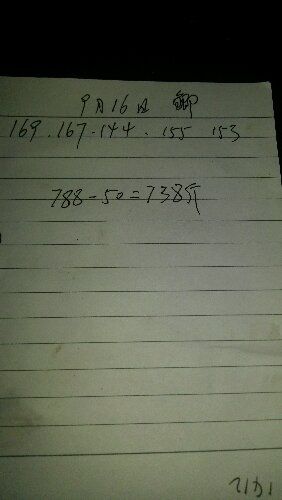 9月16日
169.167.144.155 153
788-50=738斤